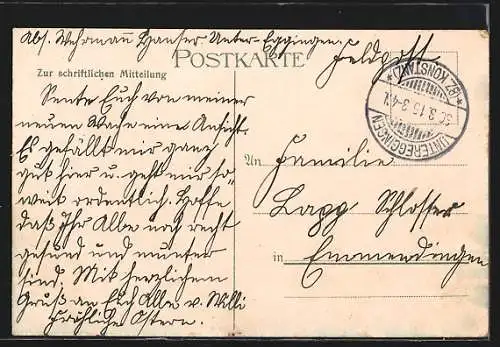 Abs. Wehrmann Hanser. Unter-Eggingen.
Feldpost
POSTKARTE
Zur schriftlichen Mitteilung
UNTEREGGINGEN
30.3.15 3-4N
(BZ. KONSTANZ)
Sente Euch von meiner
neuen Wache eine Ansicht.
Es gefällt mir ganz
gut hier u. geht mir so
weit ordentlich. Hoffe
daß Ihr Alle noch recht
gesund und munter
sind. Mit herzlichem
Gruß an Euch Alle v. Willi
Fröhliche Ostern.
An Familie
Lapp Schlosser
in Emmendingen